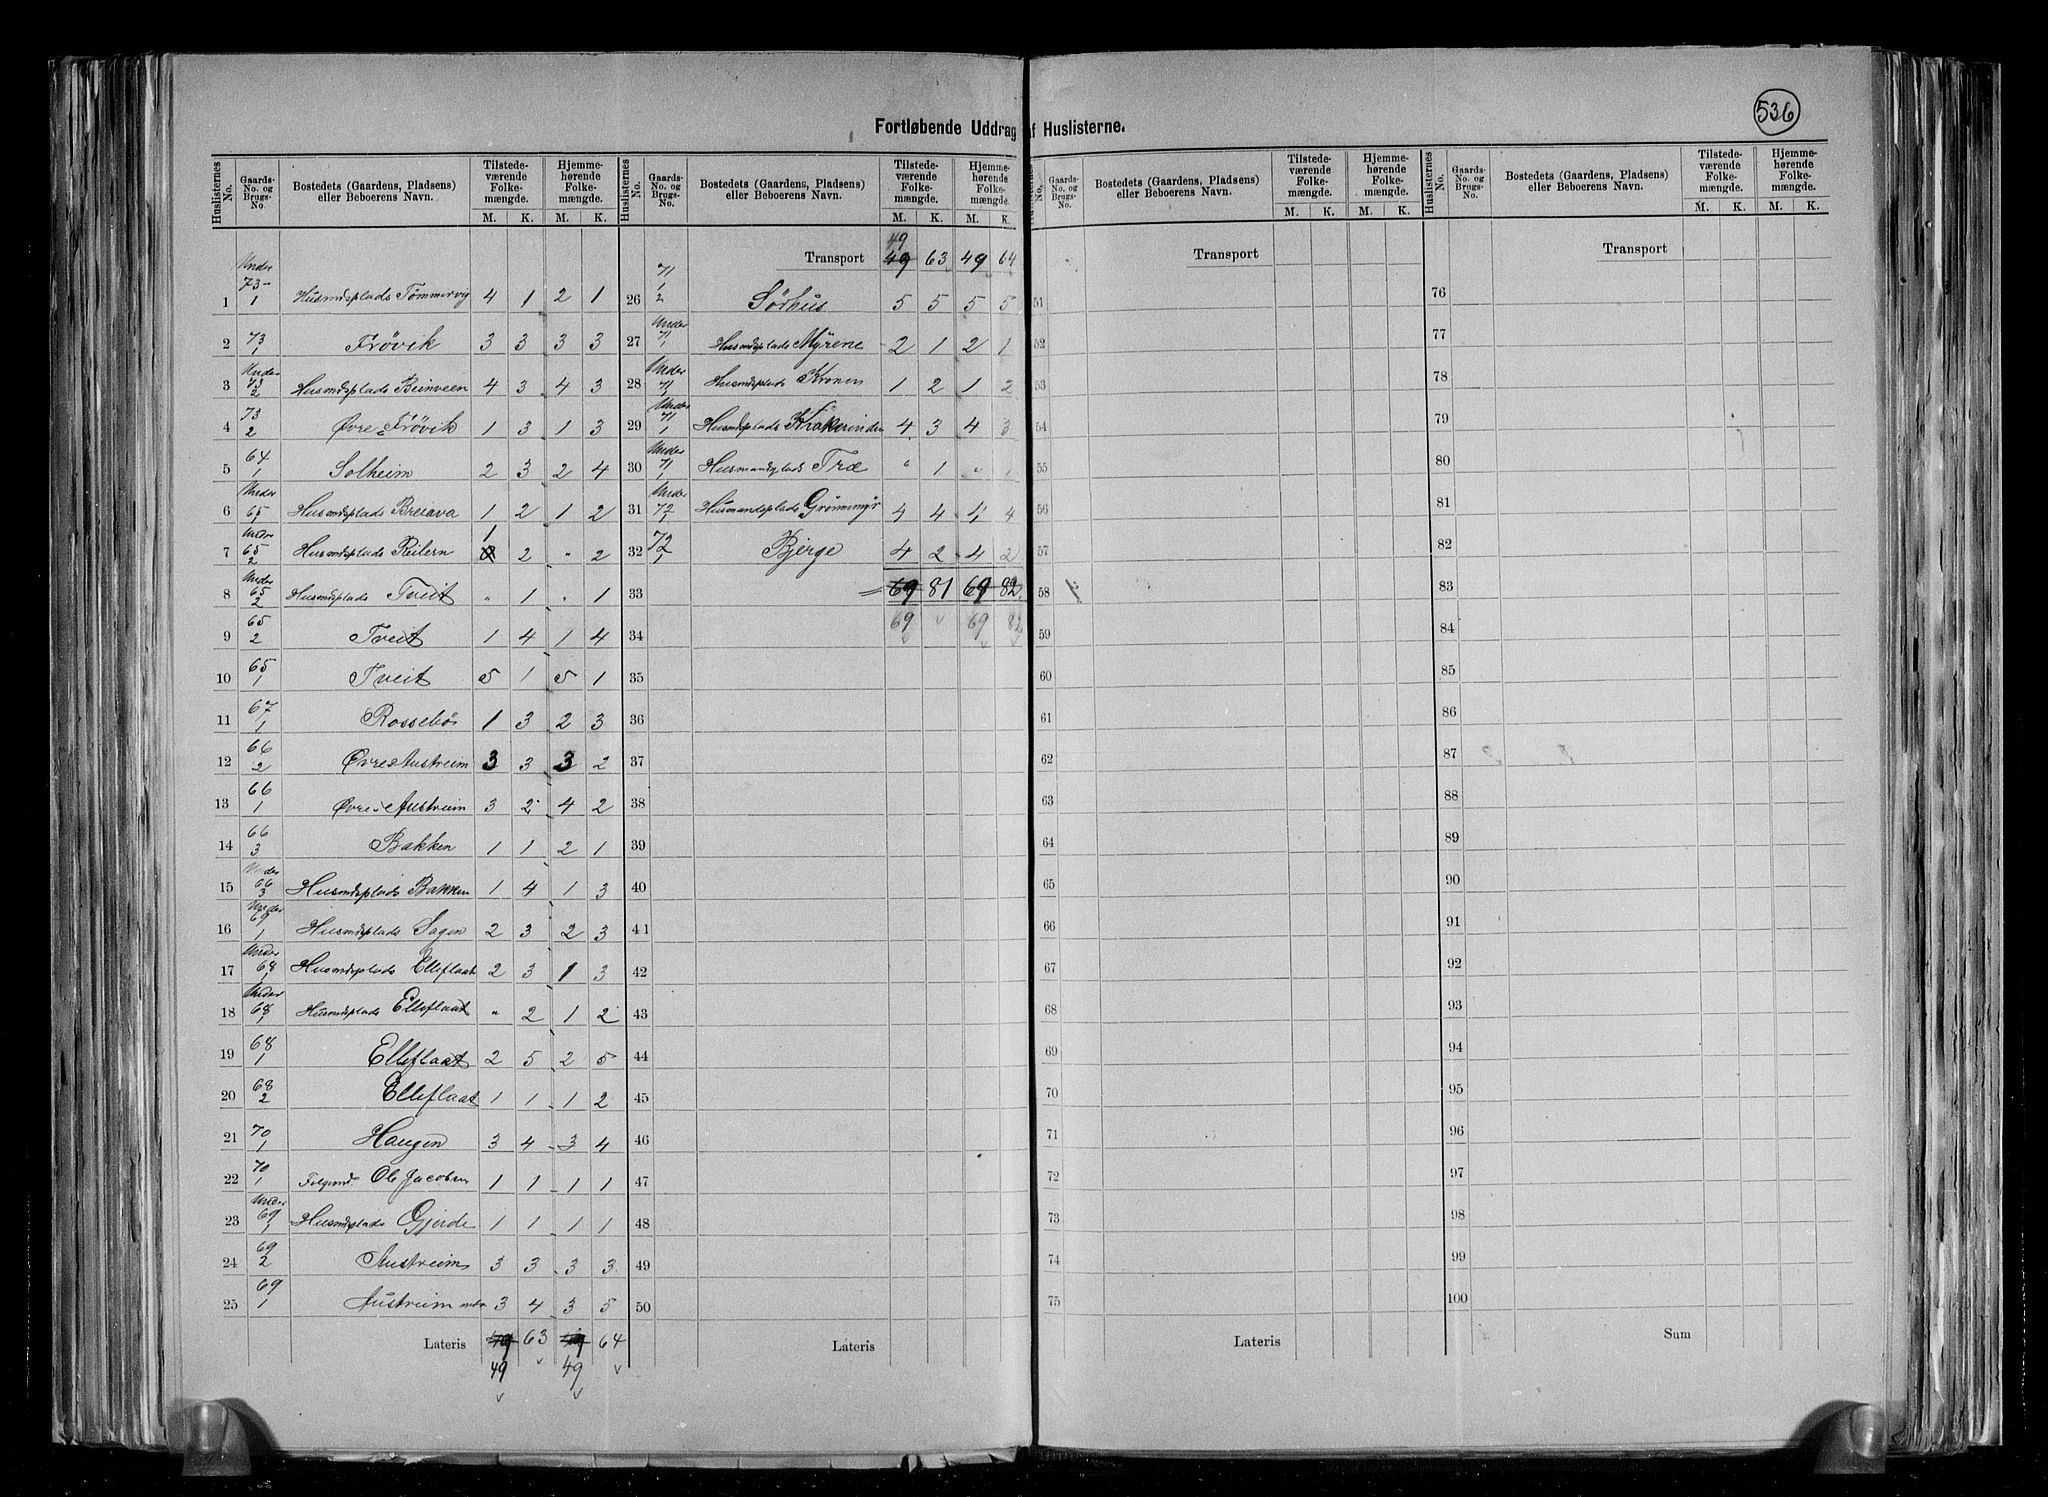 536
Fortløbende Uddrag af Huslisterne.
Huslisternes No. | Gaards-No. og Brugs-No. | Bostedets (Gaardens, Pladsens) eller Beboerens Navn. | Tilstedeværende Folkemængde. M. K. | Hjemmehørende Folkemængde. M. K.
1 | Under 73 1 | Husmdsplads Tömmervig | 4 | 1 | 2 | 1
2 | 73 1 | Frövik | 3 | 3 | 3 | 3
3 | Under 73 2 | Husmdsplads Beinveen | 4 | 3 | 4 | 3
4 | 73 2 | Øvre Frövik | 1 | 3 | 1 | 3
5 | 64 1 | Solheim | 2 | 3 | 2 | 4
6 | Under 65 1 | Husmdsplads Breiava | 1 | 2 | 1 | 2
7 | Under 65 2 | Husmdsplads Reilern | 1 | 2 | " | 2
8 | Under 65 2 | Husmdsplads Tveit | " | 1 | " | 1
9 | 65 2 | Tveit | 1 | 4 | 1 | 4
10 | 65 1 | Tveit | 5 | 1 | 5 | 1
11 | 67 1 | Rossebö | 1 | 3 | 2 | 3
12 | 66 2 | Øvre Austreim | 3 | 3 | 3 | 2
13 | 66 1 | Øvre Austreim | 3 | 2 | 4 | 2
14 | 66 3 | Bakken | 1 | 1 | 2 | 1
15 | Under 66 3 | Husmdsplads Bakken | 1 | 4 | 1 | 3
16 | Under 69 1 | Husmdsplads Sagen | 2 | 3 | 2 | 3
17 | Under 68 1 | Husmdsplads Elleflaat | 2 | 3 | 1 | 3
18 | Under 68 1 | Husmdsplads Elleflaat | " | 2 | 1 | 2
19 | 68 1 | Elleflaat | 2 | 5 | 2 | 5
20 | 68 2 | Elleflaat | 1 | 1 | 1 | 2
21 | 70 1 | Haugen | 3 | 4 | 3 | 4
22 | 70 1 | Ole Jacobsen | 1 | 1 | 1 | 1
23 | Under 69 1 | Husmdsplads Gjerde | 1 | 1 | 1 | 1
24 | 69 2 | Austreim | 3 | 3 | 3 | 3
25 | 69 1 | Austreim | 3 | 4 | 3 | 5
Lateris | 49 | 63 | 49 | 64
49 | 49
Huslisternes No. | Gaards-No. og Brugs-No. | Bostedets (Gaardens, Pladsens) eller Beboerens Navn. | Tilstedeværende Folkemængde. M. K. | Hjemmehørende Folkemængde. M. K.
49
Transport | 49 | 63 | 49 | 64
26 | 71 1 2 | Sörhus | 5 | 5 | 5 | 5
27 | Under 71 1 | Husmdsplads Myrene | 2 | 1 | 2 | 1
28 | Under 71 1 | Husmdsplads Kronen | 1 | 2 | 1 | 2
29 | Under 71 1 | Husmdsplads | 4 | 3 | 4 | 3
30 | Under 71 1 | Husmandsplads Træ | " | 1 | " | 1
31 | Under 72 1 | Husmandsplads Grönnemyr | 4 | 4 | 4 | 4
32 | 72 1 | Bjerge | 4 | 2 | 4 | 2
33 | 69 | 81 | 69 | 82
34 | 69 | 69 | 82
35
36
37
38
39
40
41
42
43
44
45
46
47
48
49
50
Lateris
No. | Gaards-No. og Brugs-No. | Bostedets (Gaardens, Pladsens) eller Beboerens Navn. | Tilstedeværende Folkemængde. M. K. | Hjemmehørende Folkemængde. M. K.
Transport
51
52
53
54
55
56
57
58
59
60
61
62
63
64
65
66
67
68
69
70
71
72
73
74
75
Lateris
Huslisternes No. | Gaards-No. og Brugs-No. | Bostedets (Gaardens, Pladsens) eller Beboerens Navn. | Tilstedeværende Folkemængde. M. K. | Hjemmehørende Folkemængde. M. K.
Transport
76
77
78
79
80
81
82
83
84
85
86
87
88
89
90
91
92
93
94
95
96
97
98
99
100
Sum